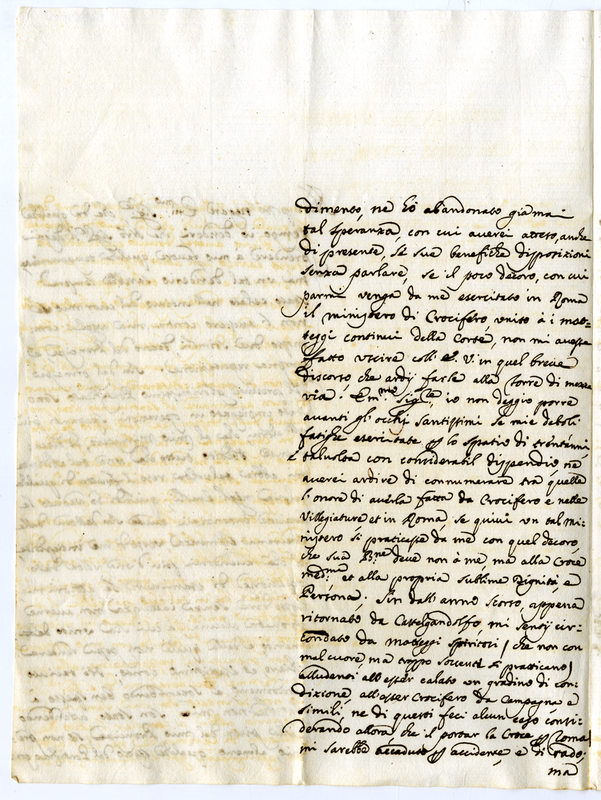 dimento, ne hò abandonato giamai
tal speranza, con cui averei atteso, anche
di presente, le sue benefiche disposizioni
senza parlare, se il poco decoro, con cui
parmi venga da me esercitato in Roma
il ministero di Crocifero, unito à i mot-
teggi continui della Corte, non mi avesse
fatto uscire coll' E. V. in quel breve
discorso che ardij farle alla Torre di mezza
via. Em.mo Sig.re, io non deggio porre
avanti gl'occhi Santissimi le mie deboli
fatiche esercitate p lo spatio di trent'anni
e talvolta con considerabil dispendio, ne
averei ardire di connumerare trà quelle
l'onore di averla fatta da Crocifero e nelle
Villegiature et in Roma, se quivi un tal mi-
nistero si praticasse da me con quel decoro,
che sua B.ne deve non à me, ma alla Croce
med.ma et alla propria sublime Dignità, e
Persona. Sin dall'anno scorso, appena
ritornato da Castelgandolfo, mi sentij cir-
condato da motteggi spiritosi / che non con
mal cuore, ma troppo sovente si praticano /
alludenti all'esser calato un gradino di con-
dizione, all'esser Crocifero da Campagna e
simili, ne di questi feci alcun caso consi-
derando allora che il portar la Croce p Roma
mi sarebbe accaduto p accidente, e di rado,
mà